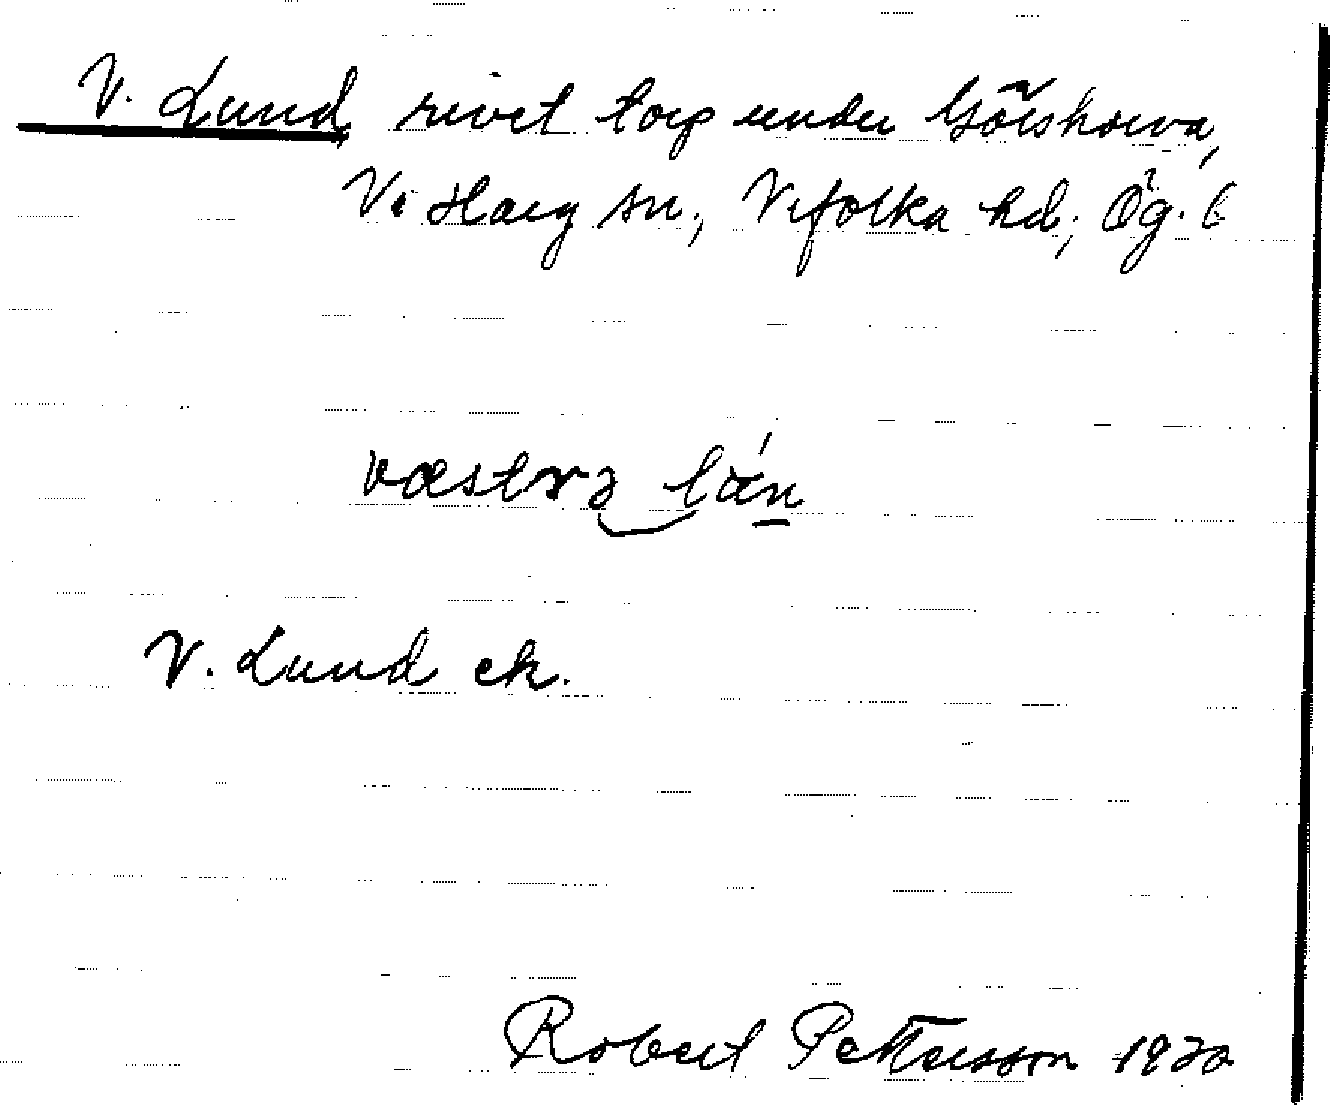 V. Lund rivet torp under Götshorva,
V. Harg sn, Vifolka hd, Ög. l
væstrə lún
V. Lund ek.
Robert Pettersson 1930